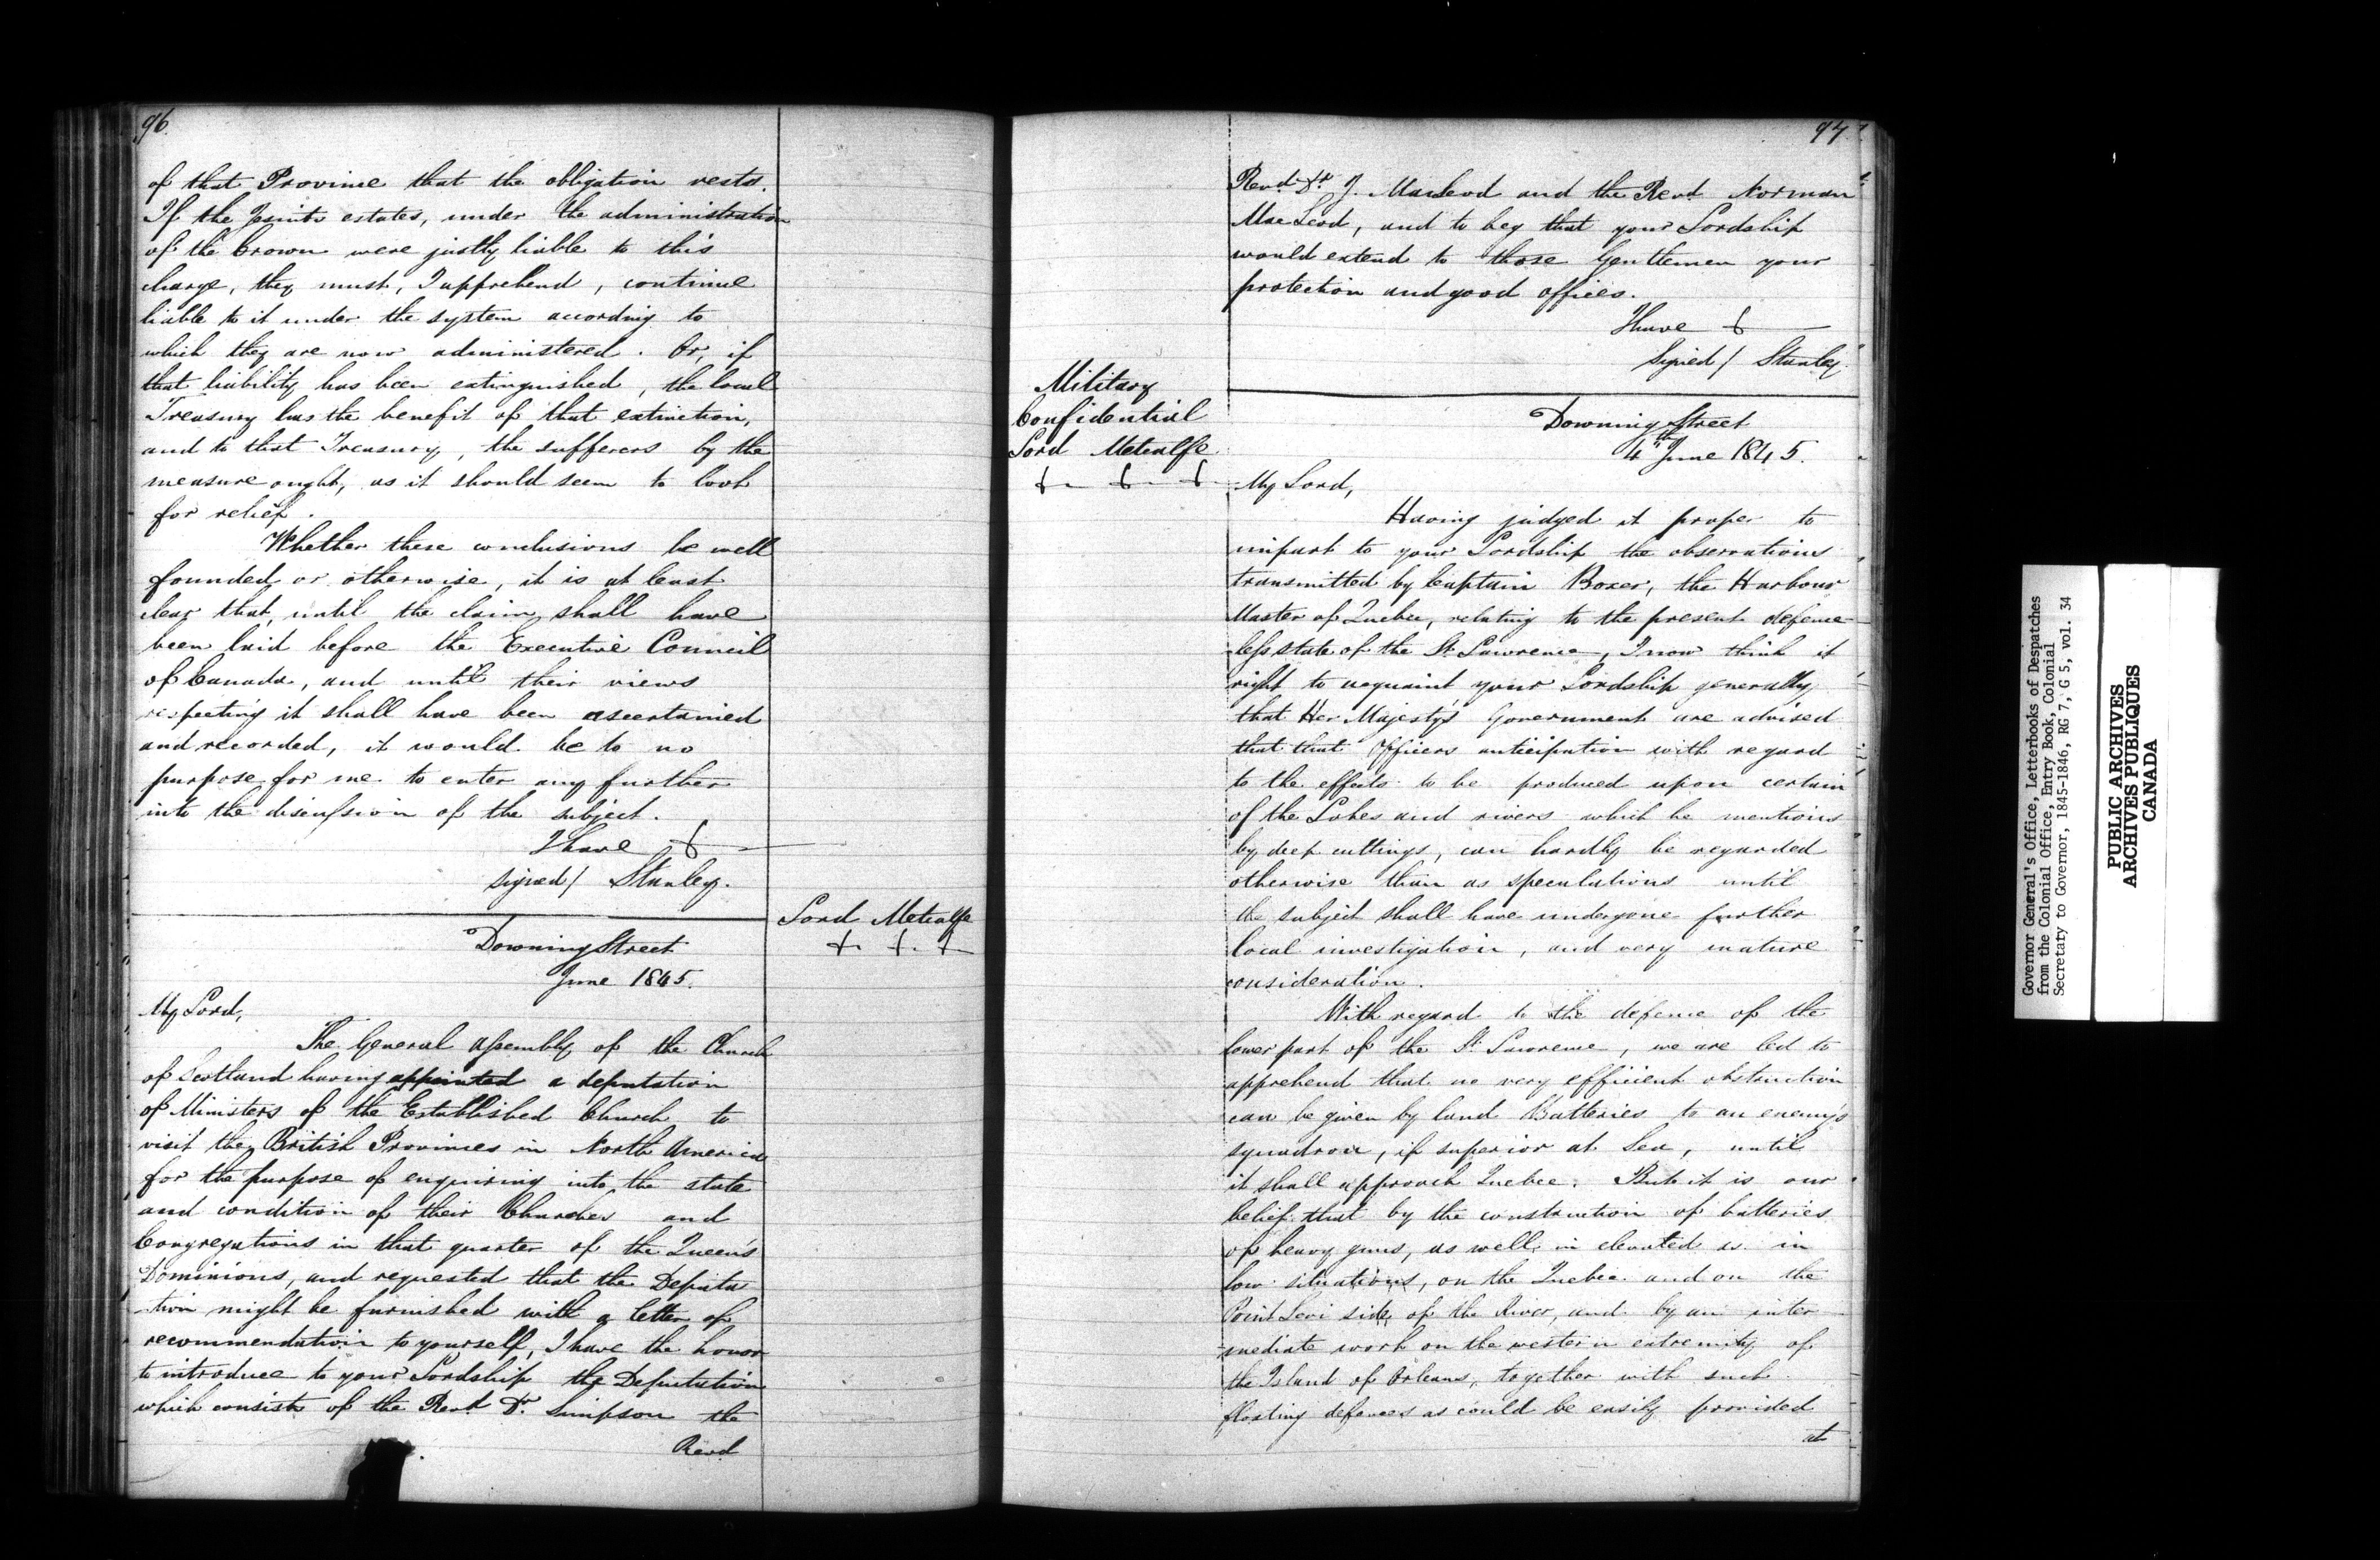 96.
of that Province that the obligation rests.
If the Jesuits estates, under the administration
of the Crown were justly liable to this
charge, they must, I apprehend, continue
liable to it under the system according to
which they are now administered. Or, if
that liability has been extinguished, the local
Treasury has the benefit of that extinction,
and to that Treasury, the sufferers by the
measure ought, as it should seem to look
for relief.
Whether these conclusions be well
founded or otherwise, it is at least
clear that, until the claim shall have
been laid before the Executive Council
of Canada, and until their views
respecting it shall have been ascertained
and recorded, it would be to no
purpose for me to enter any further
into the discussion of the subject.
I have &
signed / Stanley.
Lord Metcalfe
&. &. &
Downing Street
June 1845.
My Lord,
The General Assembly of the Church
of Scotland having appointed a deputation
of Ministers of the Established Church to
visit the British Provinces in North America
for the purpose of enquiring into the state
and condition of their Churches and
Congregations in that quarter of the Queen's
Dominions, and requested that the Deputa
-tion might be furnished with a letter of
recommendation to yourself, I have the honor
to introduce to your Lordship the Deputation
which consists of the Revd. Dr. Simpson the
Revd
97
Revd. Dr. J. MacLeod and the Revd. Norman
MacLeod, and to beg that your Lordship
would extend to those Gentlemen your
protection and good offices.
I have &
signed / Stanley.
Military
Confidential
Lord Metcalfe
&. &. &.
Downing Street
4th June 1845.
My Lord,
Having judged it proper to
impart to your Lordship the observations
transmitted by Captain Boxer, the Harbour
Master of Quebec, relating to the present defence-
less state of the St. Lawrence, I now think it
right to acquaint your Lordship generally
that Her Majesty's Government are advised
that that Officers anticipation with regard
to the effects to be produced upon certain
of the Lakes and rivers which he mentions
by deep cuttings, can hardly be regarded
otherwise than as speculations until
the subject shall have undergone further
local investigation, and very mature
consideration.
With regard to the defence of the
lower part of the St. Lawrence, we are led to
apprehend that no very efficient obstruction
can be given by land Batteries to an enemy's
squadron, if superior at Sea, until
it shall approach Quebec. But it is our
belief that by the construction of batteries
of heavy guns, as well in elevated as in
low situations, on the Quebec and on the
Point Levi side of the River, and by an inter
-mediate work on the western extremity of
the Island of Orleans, together with such
floating defences as could be easily provided
at
Governor General's Office, Letterbooks of Despatches
from the Colonial Office, Entry Book, Colonial
Secretary to Governor, 1845-1846, RG 7, G 5, vol. 34
PUBLIC ARCHIVES
ARCHIVES PUBLIQUES
CANADA